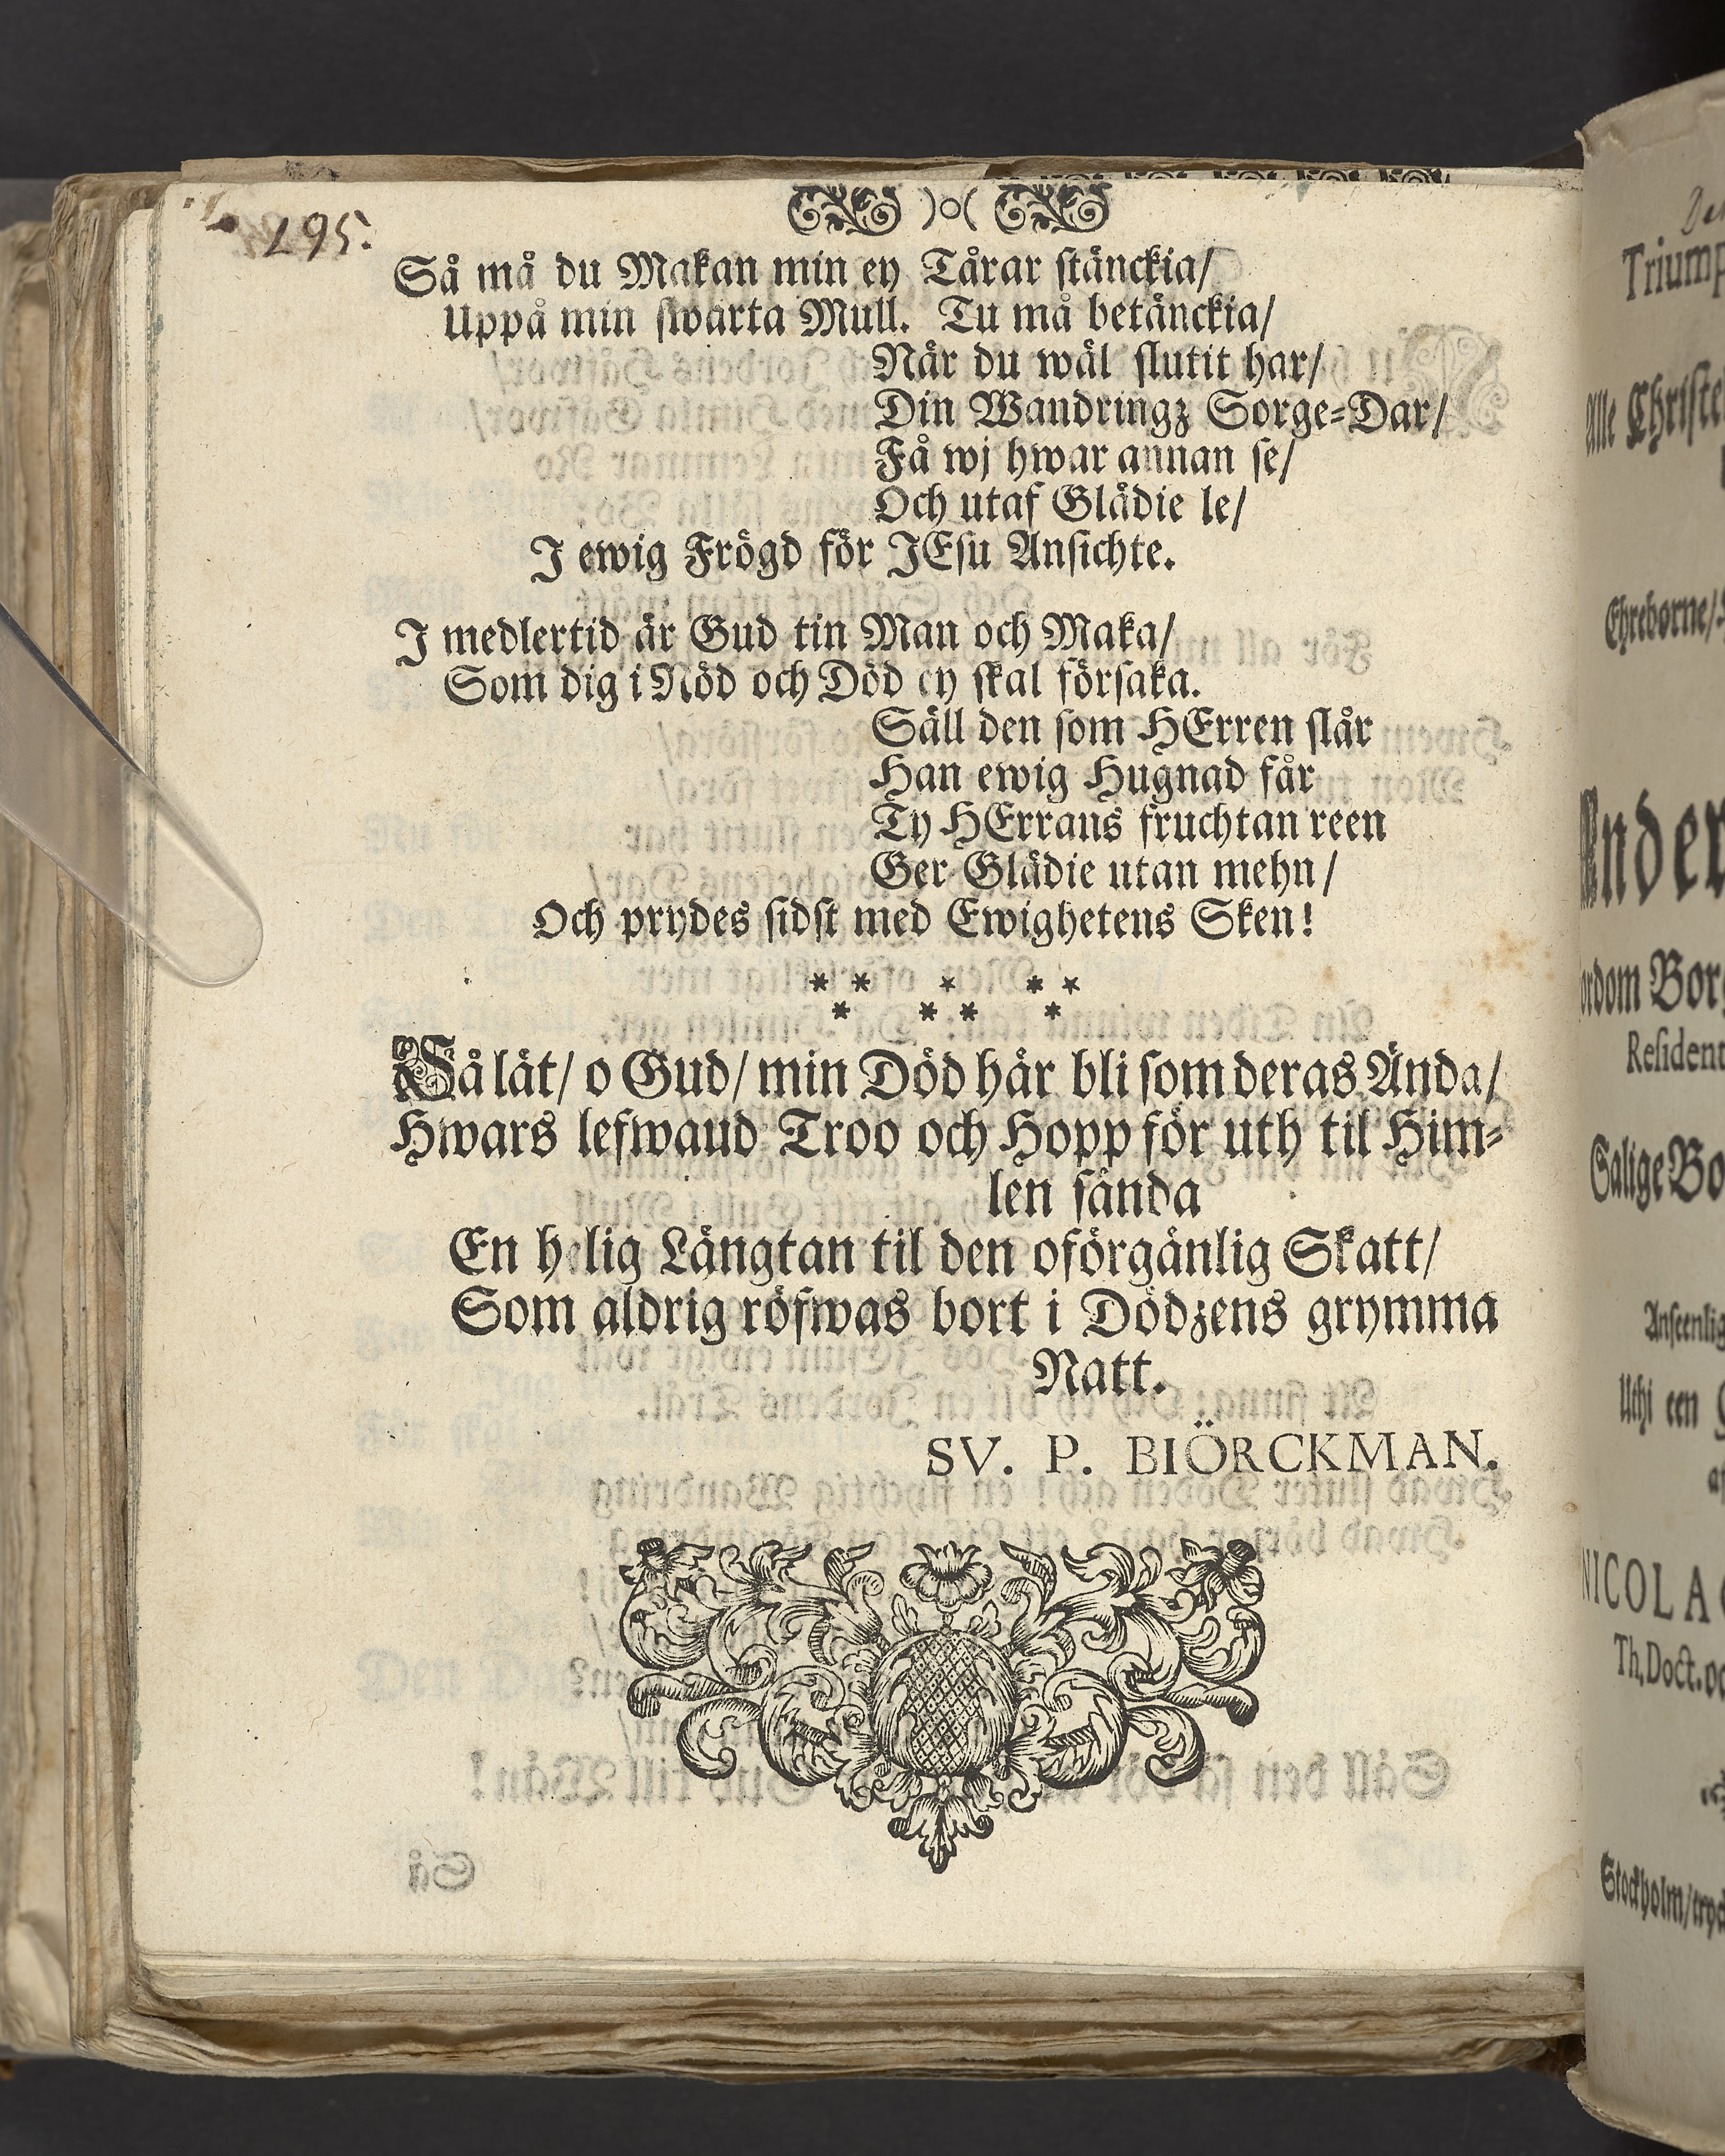 295.
)o(
Så må du Makan min ey Tårar stänckia/
Uppå min swarta Mull. Tu må betänckia/
När du wäl slutit har/
Din Wandringz Sorge=Dar/
Få wj hwar annan se/
Och utaf Glädie le/
J ewig Frögd för JEsu Ansichte.
J medlertid är Gud tin Man och Maka/
Som dig i Nöd och Död ey skal försaka.
Säll den som HErren slår
Han ewig Hugnad får
Ty HErrans fruchtan reen
Ger Glädie utan mehn/
Och prydes sidst med Ewighetens Sken!
* * * * *
* * * *
Så låt/ o Gud/ min Död här bli som deras Ända/
Hwars lefwand Troo och Hopp för uth til Him=
len sända
En helig Längtan til den oförgänlig Skatt/
Som aldrig röfwas bort i Dödzens grymma
Natt.
SV. P. BIÖRCKMAN.
Triump
Alle Christe
Ehreborne/
Ander
ordom Borg
Resident
Salige Bo
Anseenlig
Uthi een
NICOLA
Th. Doct. oc
Stockholm/ tryck